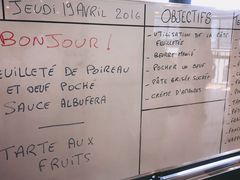 JEUDI 19 AVRIL 2016
BONJOUR !
FEUILLETÉ DE POIREAU
ET OEUF POCHÉ
SAUCE ALBUFERA
TARTE AUX
FRUITS
OBJECTIFS
- UTILISATION DE LA PÂTE
FEUILLETÉE
- BEURRE MANIÉ
- POCHER UN OEUF
- PÂTE BRISÉE SUCRÉE
- CRÈME D'AMANDES